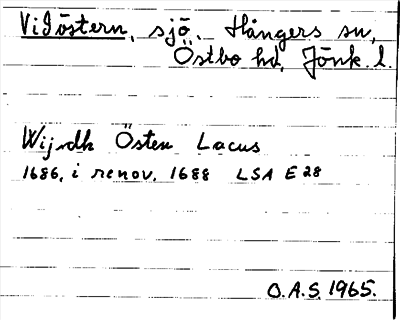 Vidöstern, sjö. Hångers sn,
Östbo hd, Jönk. l.
Wijdh Östen Lacus
1686, i renov. 1688 LSA E 28
O.A.S. 1965.